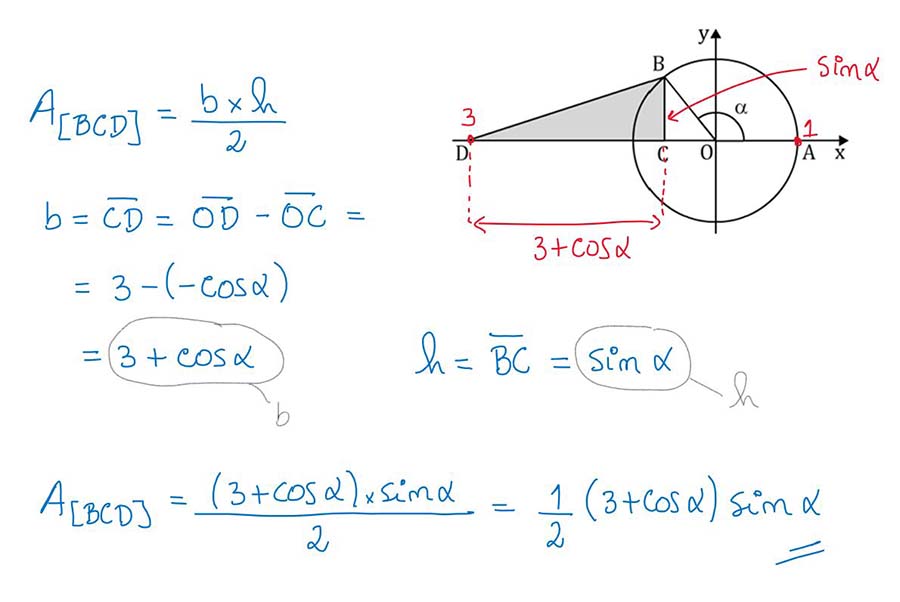 A[BCD] = b × h / 2
b = C̅D̅ = O̅D̅ - O̅C̅ =
= 3 - (-cos α)
= 3 + cos α
b
y
B
sin α
α
3
1
D
C
O
A
x
3 + cos α
h = B̅C̅ = sin α
h
A[BCD] = (3 + cos α) × sin α / 2 = 1/2 (3 + cos α) sin α